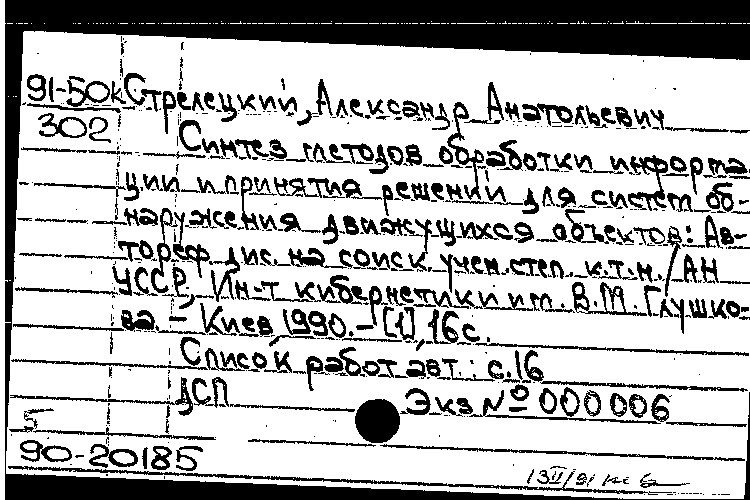 91-50к Стрелецкий, Александр Анатольевич
302
Синтез методов обработки информа-
ции и принятия решений для систем об-
наружения движущихся объектов: Ав-
тореф. дис. на соиск. учен. степ. к.т.н. / АН
УССР, Ин-т кибернетики им. В.М. Глушко-
ва. – Киев, 1990. – [1], 16 с.
Список работ авт.: с. 16
ДСП
Экз № 000006
5
90-20185
13 II/91